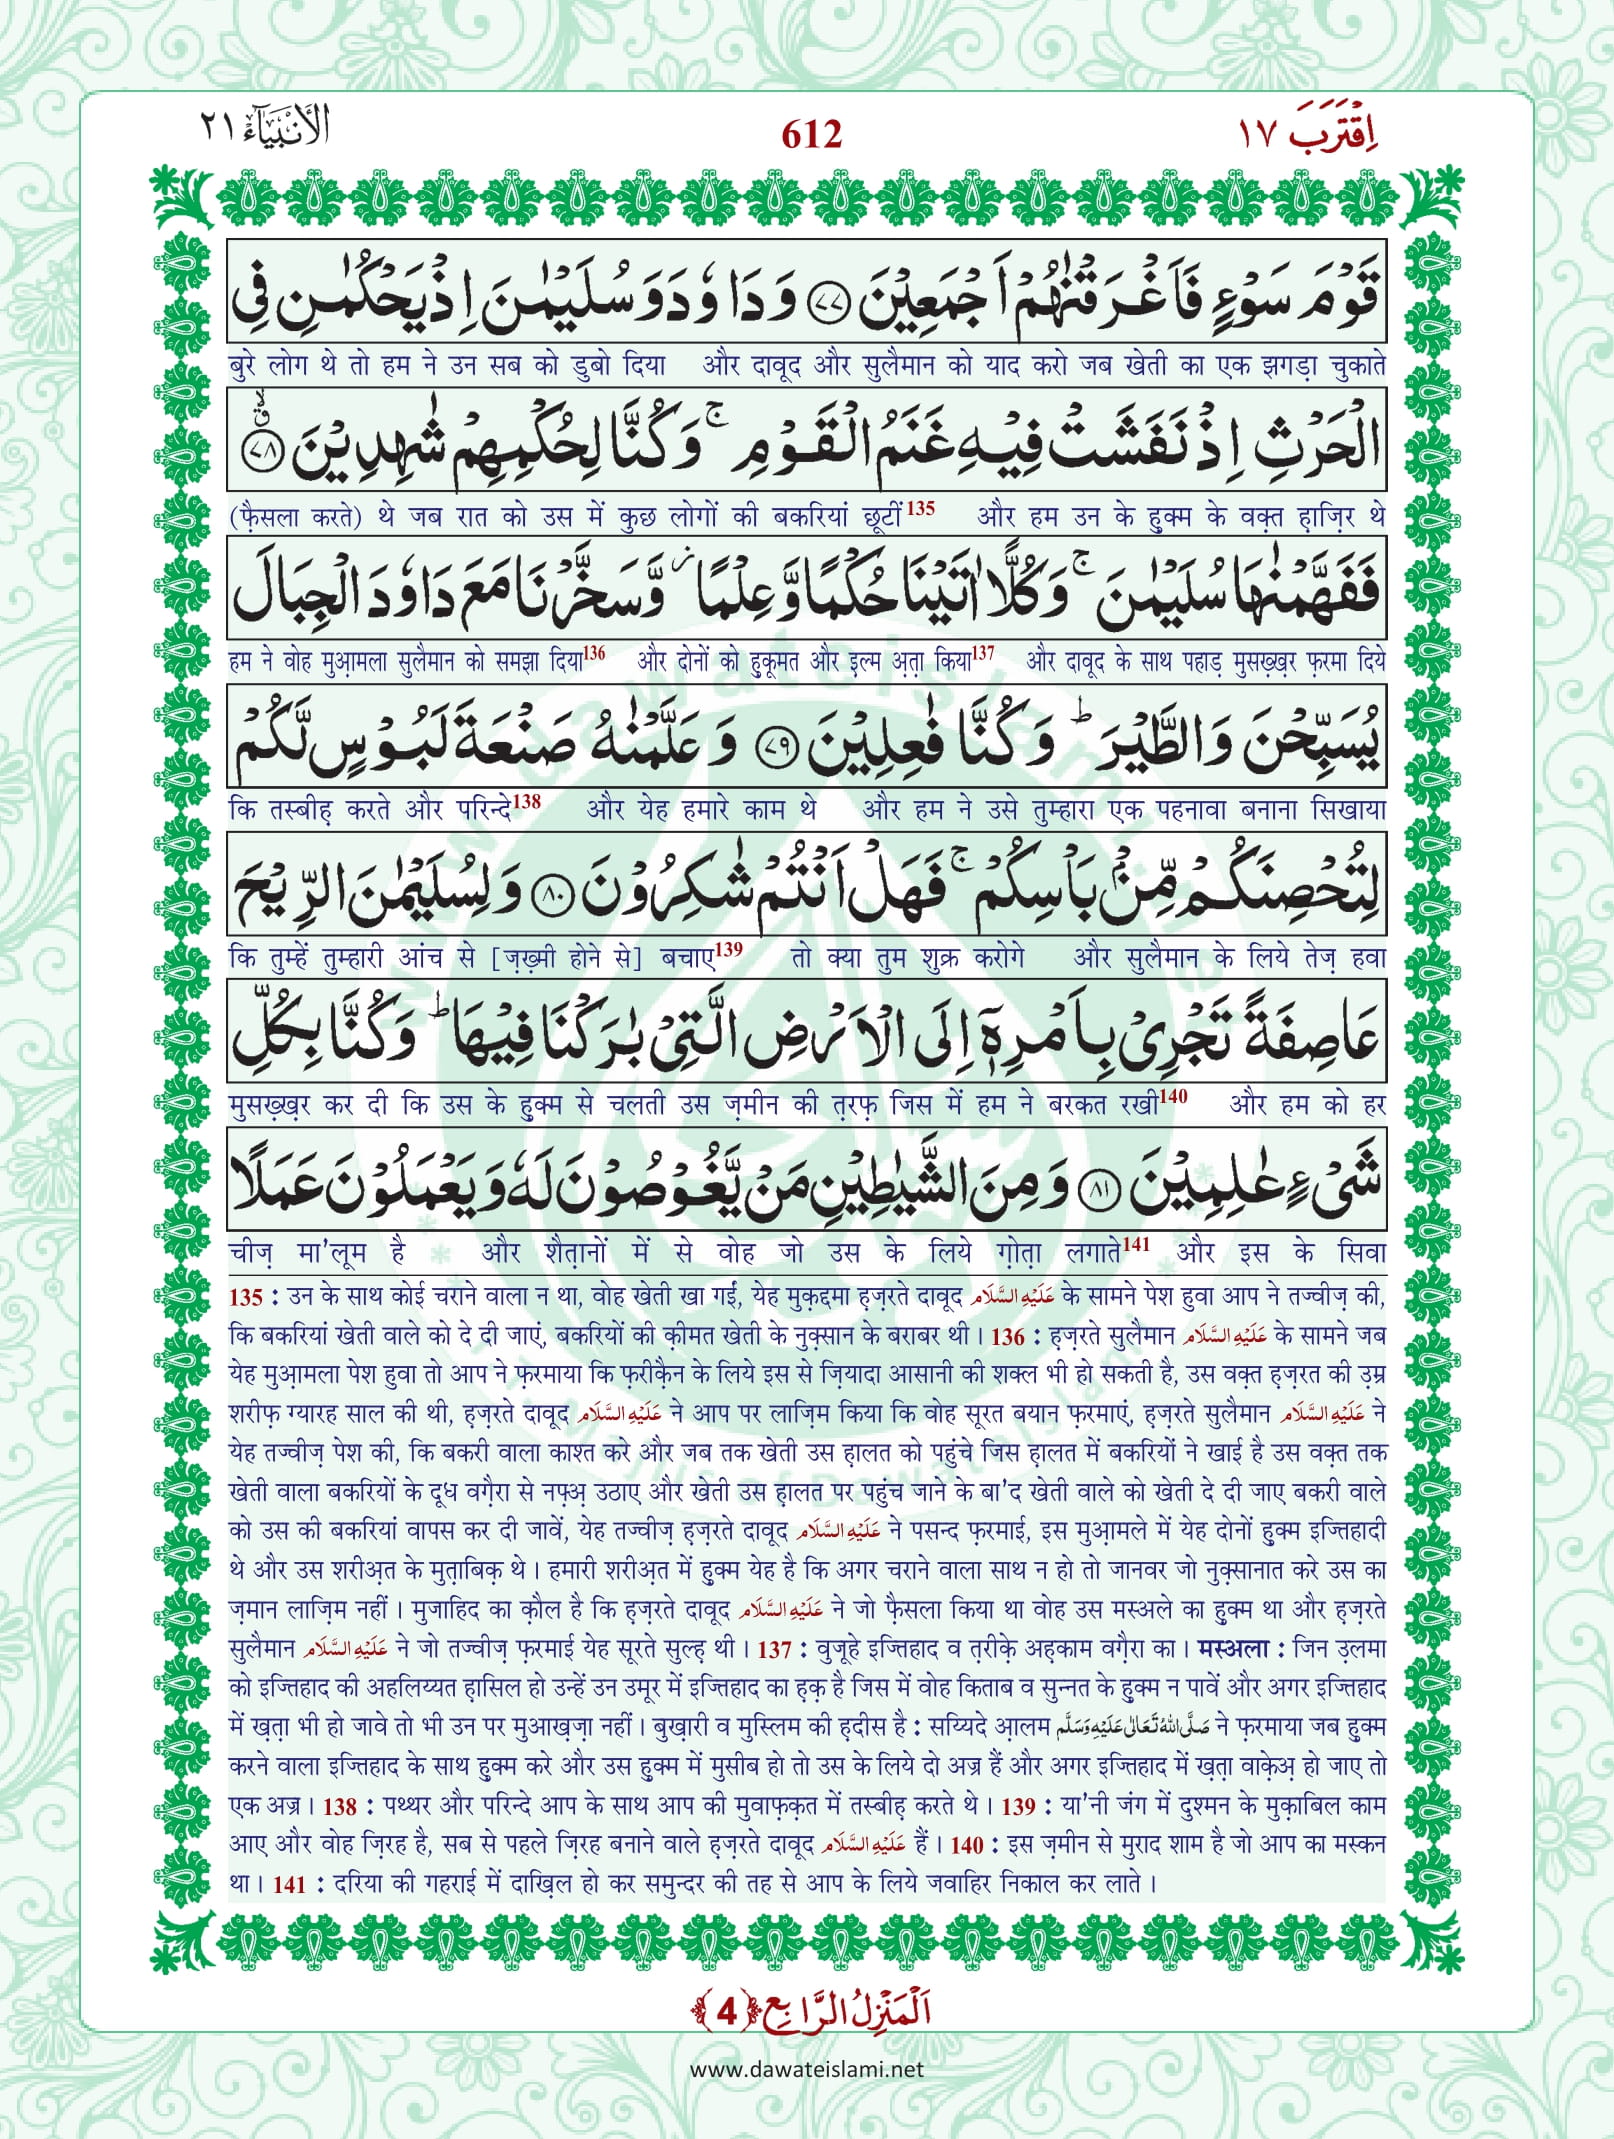 اِقْتَرَبَ ١٧ 612 الْاَنْبِيَآء ٢١
قَوْمَ سَوْءٍ فَاَغْرَقْنٰهُمْ اَجْمَعِيْنَ ﴿٧٧﴾ وَدَاوٗدَ وَسُلَيْمٰنَ اِذْ يَحْكُمٰنِ فِى
बुरे लोग थे तो हम ने उन सब को डुबो दिया और दावूद और सुलैमान को याद करो जब खेती का एक झगड़ा चुकाते
الْحَرْثِ اِذْ نَفَشَتْ فِيْهِ غَنَمُ الْقَوْمِ ۚ وَكُنَّا لِحُكْمِهِمْ شٰهِدِيْنَ ﴿٧٨﴾ۙۗ
(फ़ैसला करते) थे जब रात को उस में कुछ लोगों की बकरियां छूटीं135 और हम उन के हुक्म के वक़्त ह़ाज़िर थे
فَفَهَّمْنٰهَا سُلَيْمٰنَ ۚ وَكُلًّا اٰتَيْنَا حُكْمًا وَّعِلْمًا ۡ وَّسَخَّرْنَا مَعَ دَاوٗدَ الْجِبَالَ
हम ने वोह मुआ़मला सुलैमान को समझा दिया136 और दोनों को हुकूमत और इल्म अ़त़ा किया137 और दावूद के साथ पहाड़ मुसख़्ख़र फ़रमा दिये
يُسَبِّحْنَ وَالطَّيْرَ ؕ وَكُنَّا فٰعِلِيْنَ ﴿٧٩﴾ وَعَلَّمْنٰهُ صَنْعَةَ لَبُوْسٍ لَّكُمْ
कि तस्बीह़ करते और परिन्दे138 और येह हमारे काम थे और हम ने उसे तुम्हारा एक पहनावा बनाना सिखाया
لِتُحْصِنَكُمْ مِّنْۢ بَاْسِكُمْ ۚ فَهَلْ اَنْتُمْ شٰكِرُوْنَ ﴿٨٠﴾ وَلِسُلَيْمٰنَ الرِّيْحَ
कि तुम्हें तुम्हारी आंच से [ज़ख़्मी होने से] बचाए139 तो क्या तुम शुक्र करोगे और सुलैमान के लिये तेज़ हवा
عَاصِفَةً تَجْرِىْ بِاَمْرِهٖۤ اِلَى الْاَرْضِ الَّتِىْ بٰرَكْنَا فِيْهَا ؕ وَكُنَّا بِكُلِّ
मुसख़्ख़र कर दी कि उस के हुक्म से चलती उस ज़मीन की त़रफ़ जिस में हम ने बरकत रखी140 और हम को हर
شَىْءٍ عٰلِمِيْنَ ﴿٨١﴾ وَمِنَ الشَّيٰطِيْنِ مَنْ يَّغُوْصُوْنَ لَهٗ وَيَعْمَلُوْنَ عَمَلًا
चीज़ मा'लूम है और शैत़ानों में से वोह जो उस के लिये ग़ोत़ा लगाते141 और इस के सिवा
135 : उन के साथ कोई चराने वाला न था, वोह खेती खा गईं, येह मुक़द्दमा ह़ज़रते दावूद عَلَيْهِ السَّلَام के सामने पेश हुवा आप ने तज्वीज़ की,
कि बकरियां खेती वाले को दे दी जाएं, बकरियों की क़ीमत खेती के नुक़्सान के बराबर थी। 136 : ह़ज़रते सुलैमान عَلَيْهِ السَّلَام के सामने जब
येह मुआ़मला पेश हुवा तो आप ने फ़रमाया कि फ़रीक़ैन के लिये इस से ज़ियादा आसानी की शक्ल भी हो सकती है, उस वक़्त ह़ज़रत की उ़म्र
शरीफ़ ग्यारह साल की थी, ह़ज़रते दावूद عَلَيْهِ السَّلَام ने आप पर लाज़िम किया कि वोह सूरत बयान फ़रमाएं, ह़ज़रते सुलैमान عَلَيْهِ السَّلَام ने
येह तज्वीज़ पेश की, कि बकरी वाला काश्त करे और जब तक खेती उस ह़ालत को पहुंचे जिस ह़ालत में बकरियों ने खाई है उस वक़्त तक
खेती वाला बकरियों के दूध वग़ैरा से नफ़्अ़ उठाए और खेती उस ह़ालत पर पहुंच जाने के बा'द खेती वाले को खेती दे दी जाए बकरी वाले
को उस की बकरियां वापस कर दी जावें, येह तज्वीज़ ह़ज़रते दावूद عَلَيْهِ السَّلَام ने पसन्द फ़रमाई, इस मुआ़मले में येह दोनों हुक्म इज्तिहादी
थे और उस शरीअ़त के मुत़ाबिक़ थे। हमारी शरीअ़त में हुक्म येह है कि अगर चराने वाला साथ न हो तो जानवर जो नुक़्सानात करे उस का
ज़मान लाज़िम नहीं। मुजाहिद का क़ौल है कि ह़ज़रते दावूद عَلَيْهِ السَّلَام ने जो फ़ैसला किया था वोह उस मस्अले का हुक्म था और ह़ज़रते
सुलैमान عَلَيْهِ السَّلَام ने जो तज्वीज़ फ़रमाई येह सूरते सुल्ह़ थी। 137 : वुजूहे इज्तिहाद व त़रीक़े अह़काम वग़ैरा का। मस्अला : जिन उ़लमा
को इज्तिहाद की अहलिय्यत ह़ासिल हो उन्हें उन उमूर में इज्तिहाद का ह़क़ है जिस में वोह किताब व सुन्नत के हुक्म न पावें और अगर इज्तिहाद
में ख़त़ा भी हो जावे तो भी उन पर मुआख़ज़ा नहीं। बुख़ारी व मुस्लिम की ह़दीस है : सय्यिदे आ़लम صَلَّى اللهُ تَعَالٰى عَلَيْهِ وَسَلَّم ने फ़रमाया जब हुक्म
करने वाला इज्तिहाद के साथ हुक्म करे और उस हुक्म में मुसीब हो तो उस के लिये दो अज्र हैं और अगर इज्तिहाद में ख़त़ा वाक़ेअ़ हो जाए तो
एक अज्र। 138 : पथ्थर और परिन्दे आप के साथ आप की मुवाफ़क़त में तस्बीह़ करते थे। 139 : या'नी जंग में दुश्मन के मुक़ाबिल काम
आए और वोह ज़िरह है, सब से पहले ज़िरह बनाने वाले ह़ज़रते दावूद عَلَيْهِ السَّلَام हैं। 140 : इस ज़मीन से मुराद शाम है जो आप का मस्कन
था। 141 : दरिया की गहराई में दाख़िल हो कर समुन्दर की तह से आप के लिये जवाहिर निकाल कर लाते।
اَلْمَنْزِلُ الرَّابِع ﴿4﴾
www.dawateislami.net